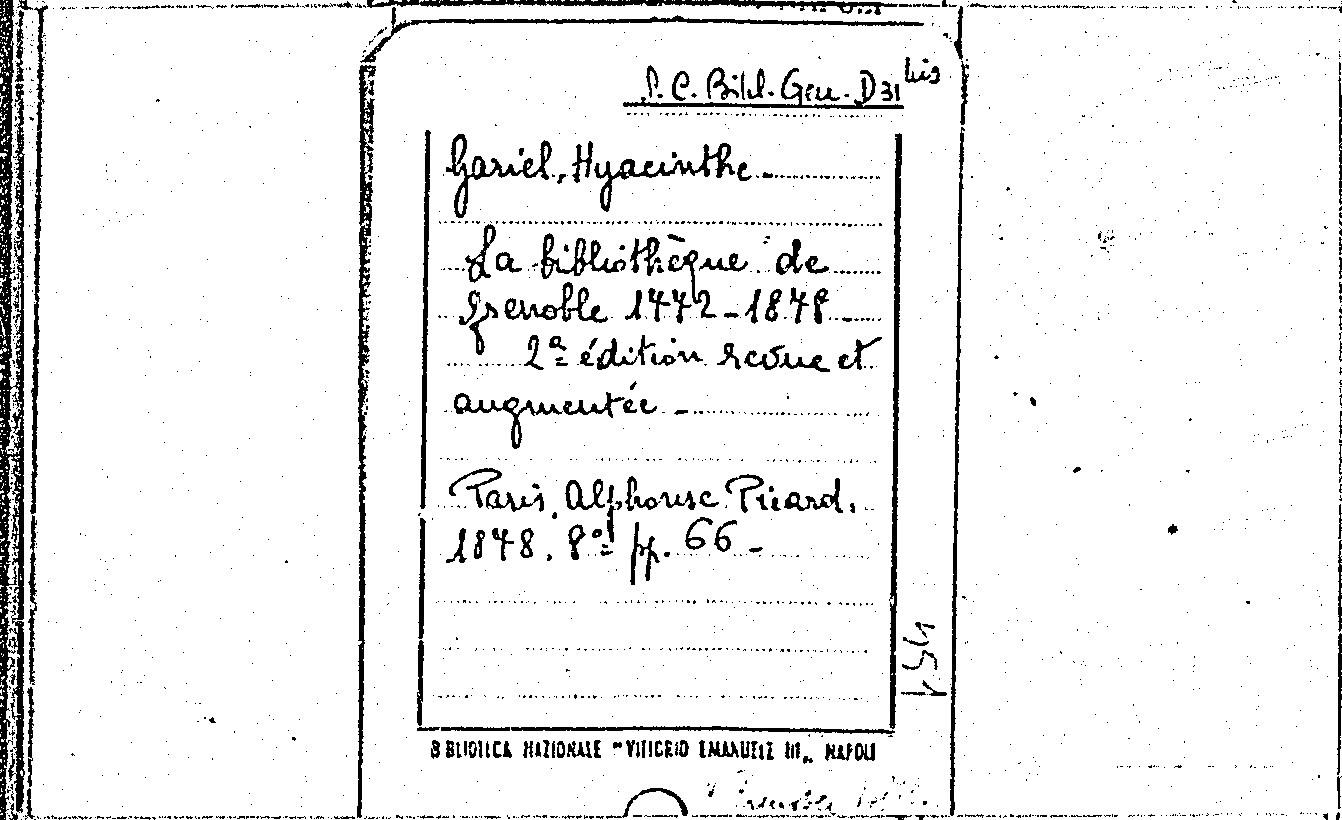 S. C. Bibl. Gen. D 31 bis
Gariel, Hyacinthe -
La bibliothèque de
Grenoble 1772 - 1878 -
2ª édition revue et
augmentée -
Paris, Alphonse Picard,
1878. 8º pp. 66 -
BIBLIOTECA NAZIONALE "VITTORIO EMANUELE III„ NAPOLI